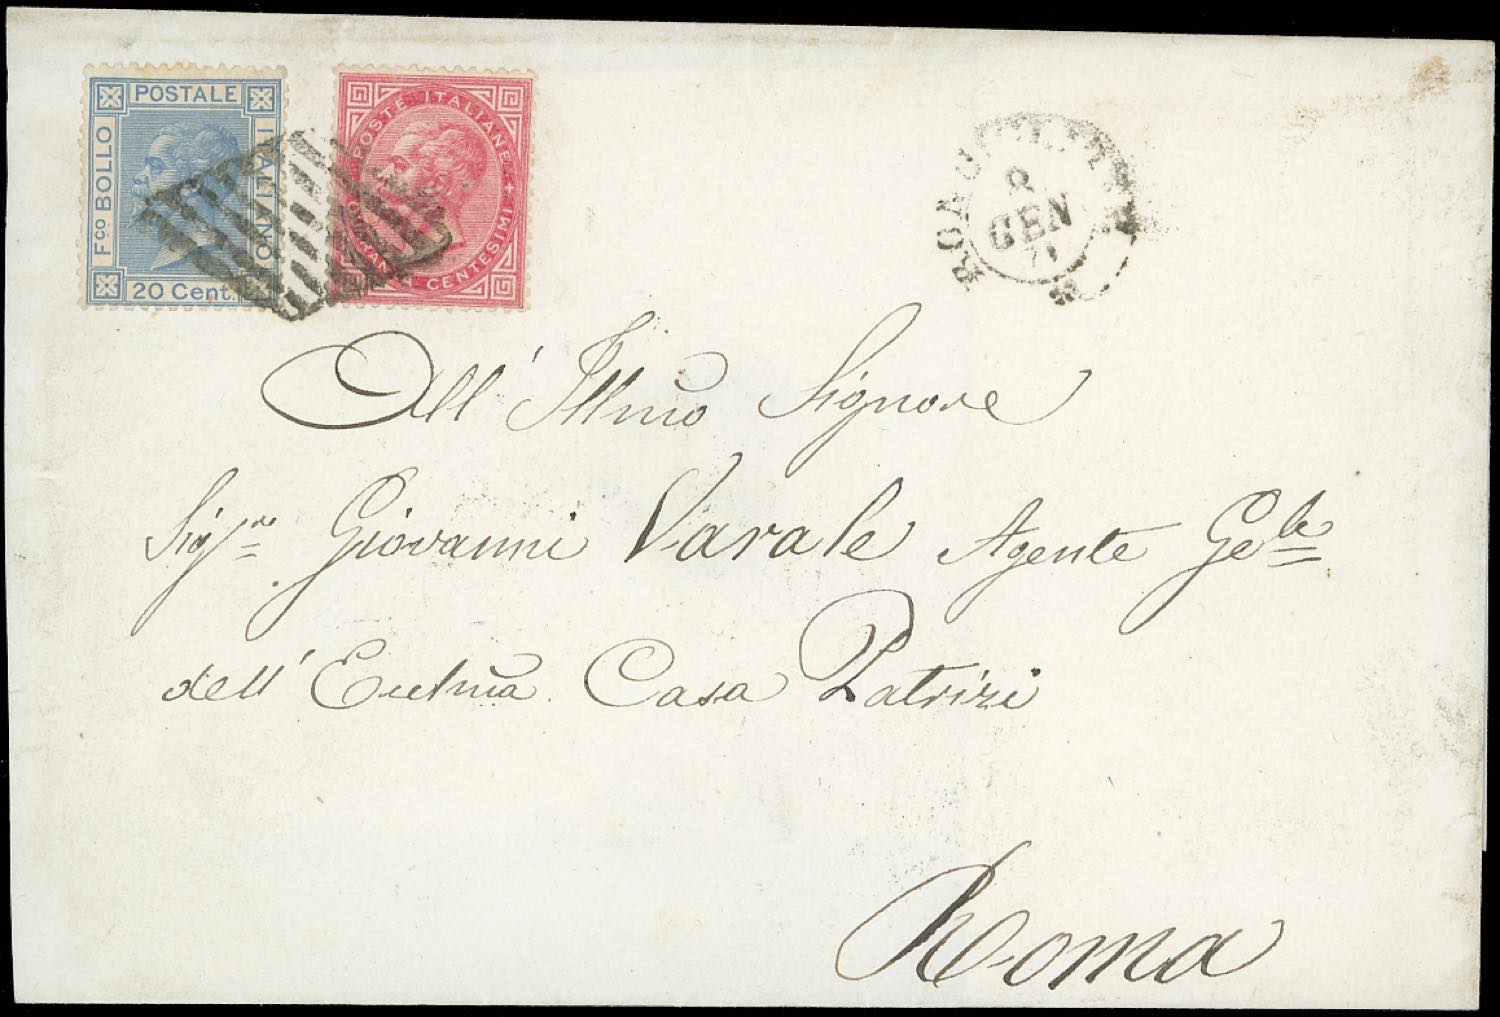 POSTALE
Fco BOLLO
ITALIANO
20 Cent.
POSTE ITALIANE
CENTESIMI
8
GEN
71
All' Illmo Signore
Sigre Giovanni Varale Agente Gele
dell' Eccma Casa Patrizi
Roma